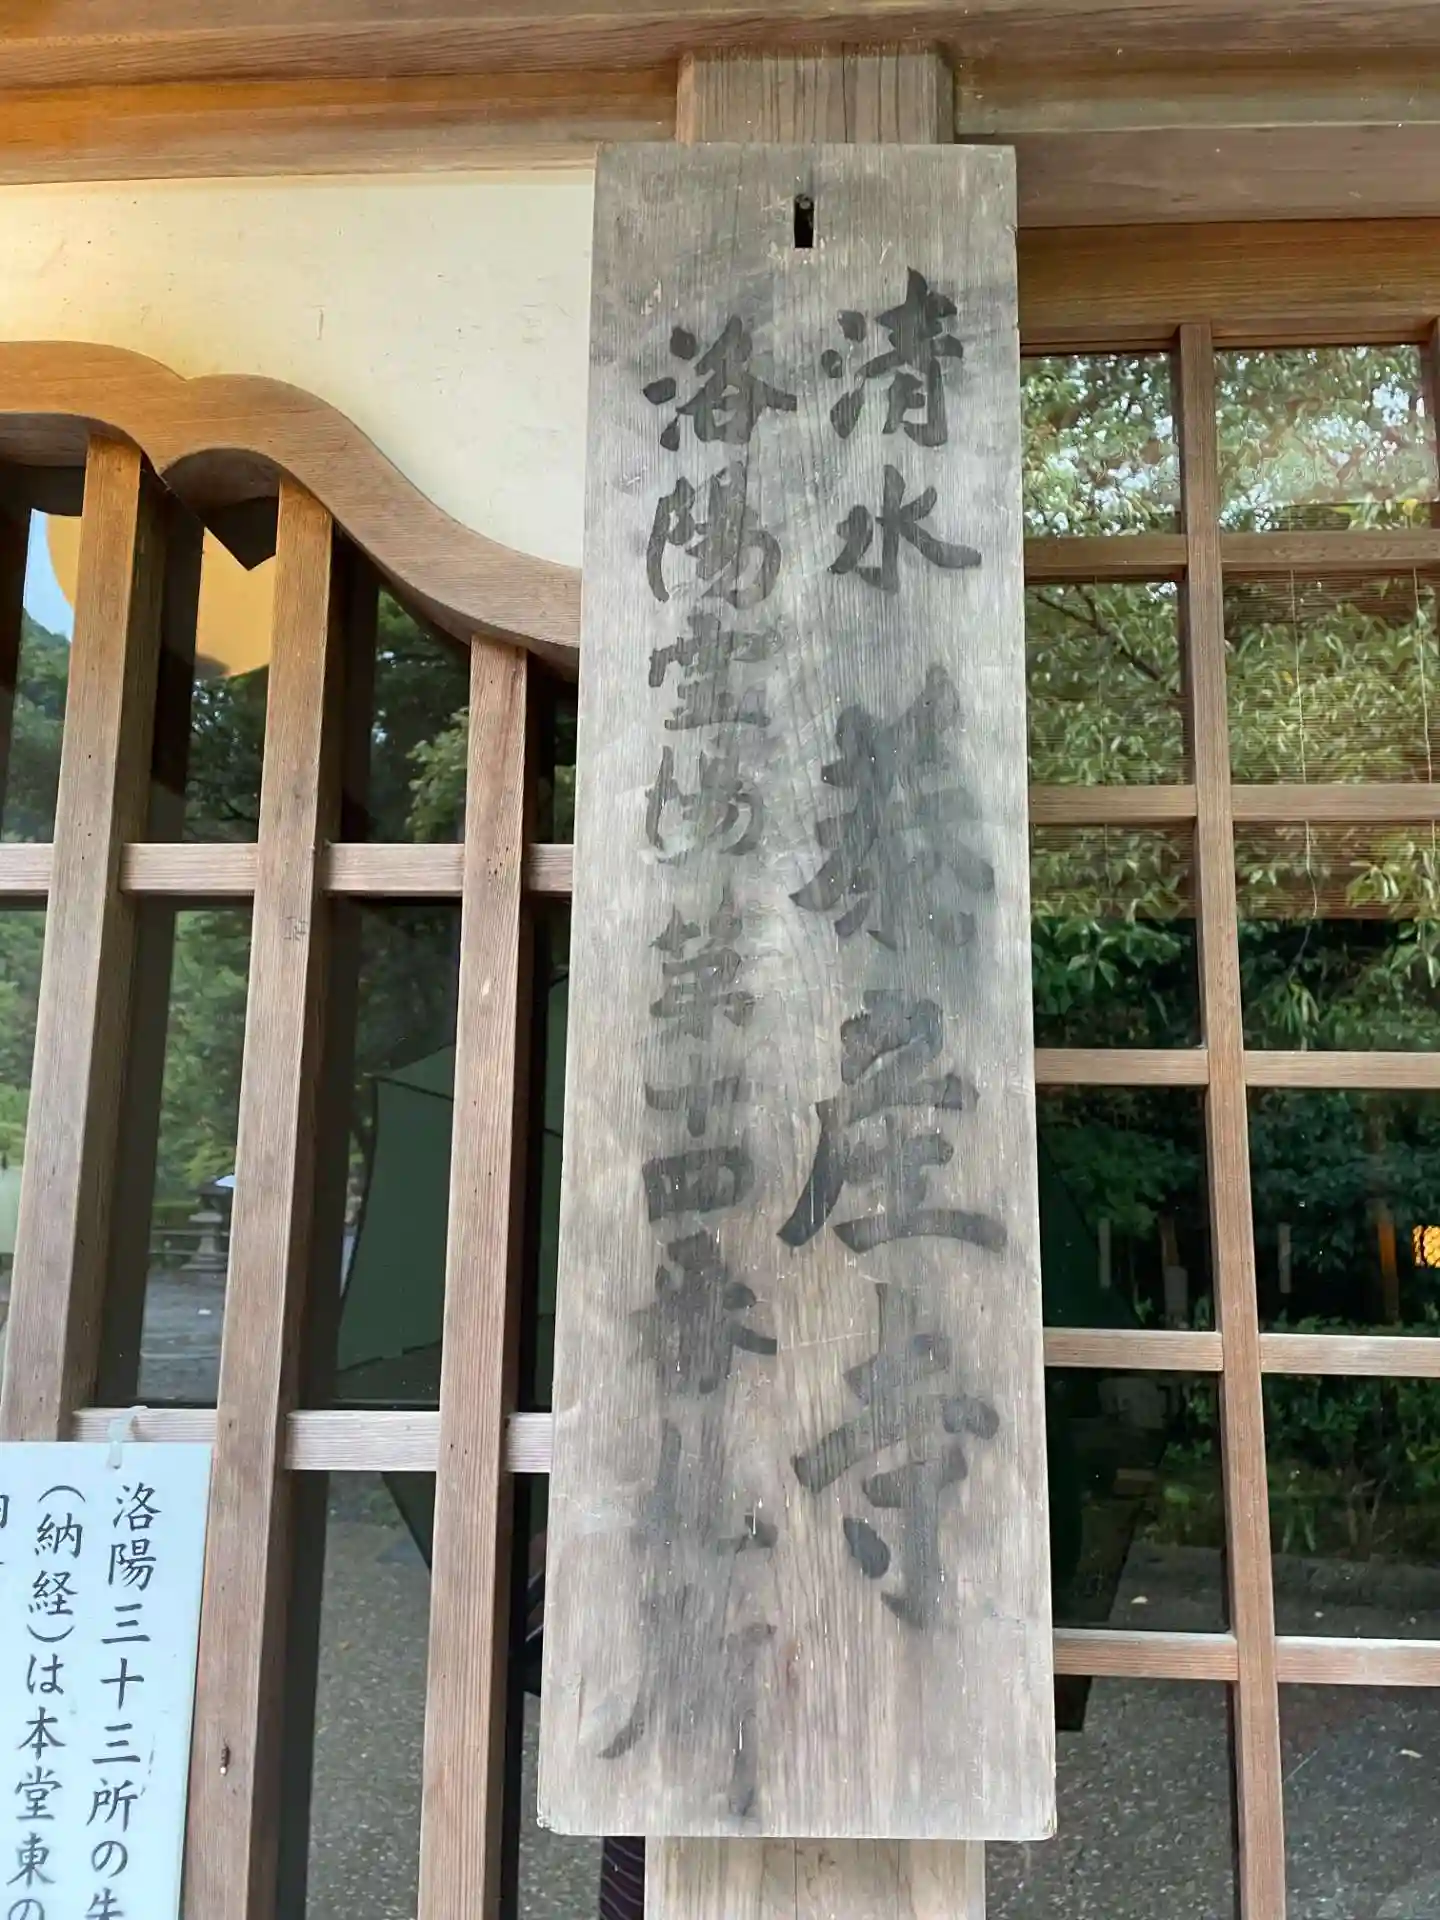 清水 泰産寺
洛陽霊場第十四番札所
洛陽三十三所の
（納経）は本堂東の